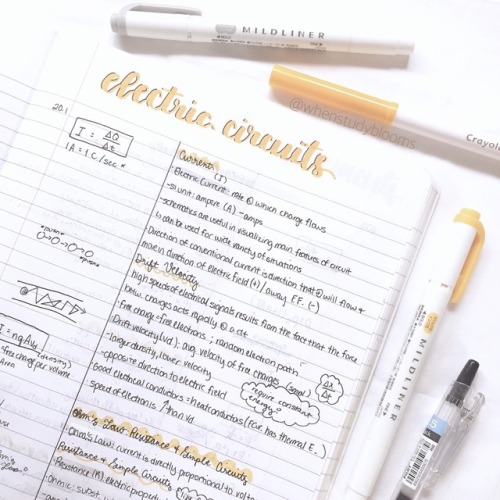 MILDLINER
@whenstudyblooms
Crayola
electric circuits
20.1
I = ΔQ
Δt
1A = 1 C/sec
Current (I)
-Electric Current: rate @ which charge flows
-SI unit: ampere (A) -amps
-schematics are useful in visualizing main features of circuit
↳ can be used for wide variety of situations
Direction of conventional current is direction that ⊕ will flow &
move in direction of electric field (+) / away EF. (-)
Drift Velocity
high speeds of electrical signals results from the fact that the force
betw. charges acts rapidly @ a dist
free charge = free electrons ; random electron path
-Drift velocity (vd): avg. velocity of free charges
-larger density, lower velocity
-opposite direction to electric field
Good electrical conductors = heat conductors
speed of electron is
require constant
energy
ΔQ
Δt
I = nqAvd
free charge per volume
Area
Ohm's Law: Resistance & Simple Circuits
Resistance & Simple Circuits
Ohm's Law: current is directly proportional to
Resistance (R), electric property
MILDLINER
5